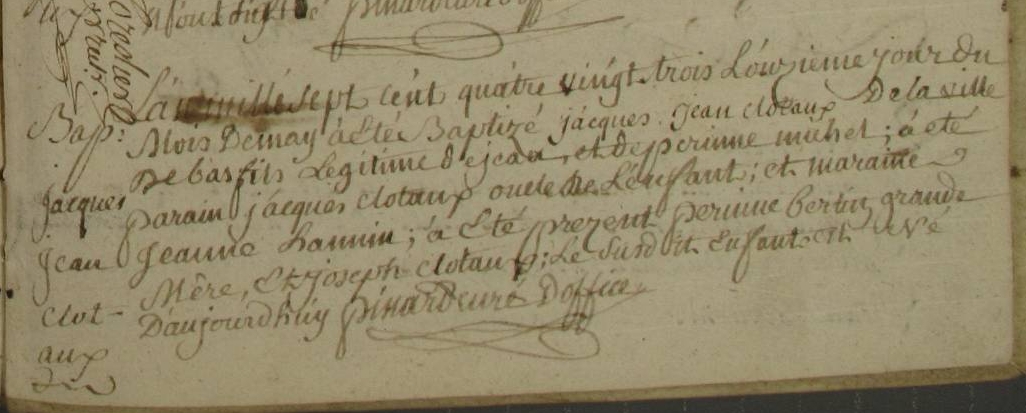 pinard curé d'office
Bap:
jacques
jean
clot-
aux
L'an mille sept cent quatre vingt trois L'onzieme jour du
Mois De may à Eté Baptizé jacques jean clotaux De la ville
De bas fils Legitime de jean, et de perinne michel; à eté
parain jacques clotaux oncle de L'enffant; et maraine
jeanne hannin; à Eté prezent perinne bertin grande
Mêre, Et joseph clotaux; Le susdit Enffant est Né
D'aujourdhüy pinard curé D'office